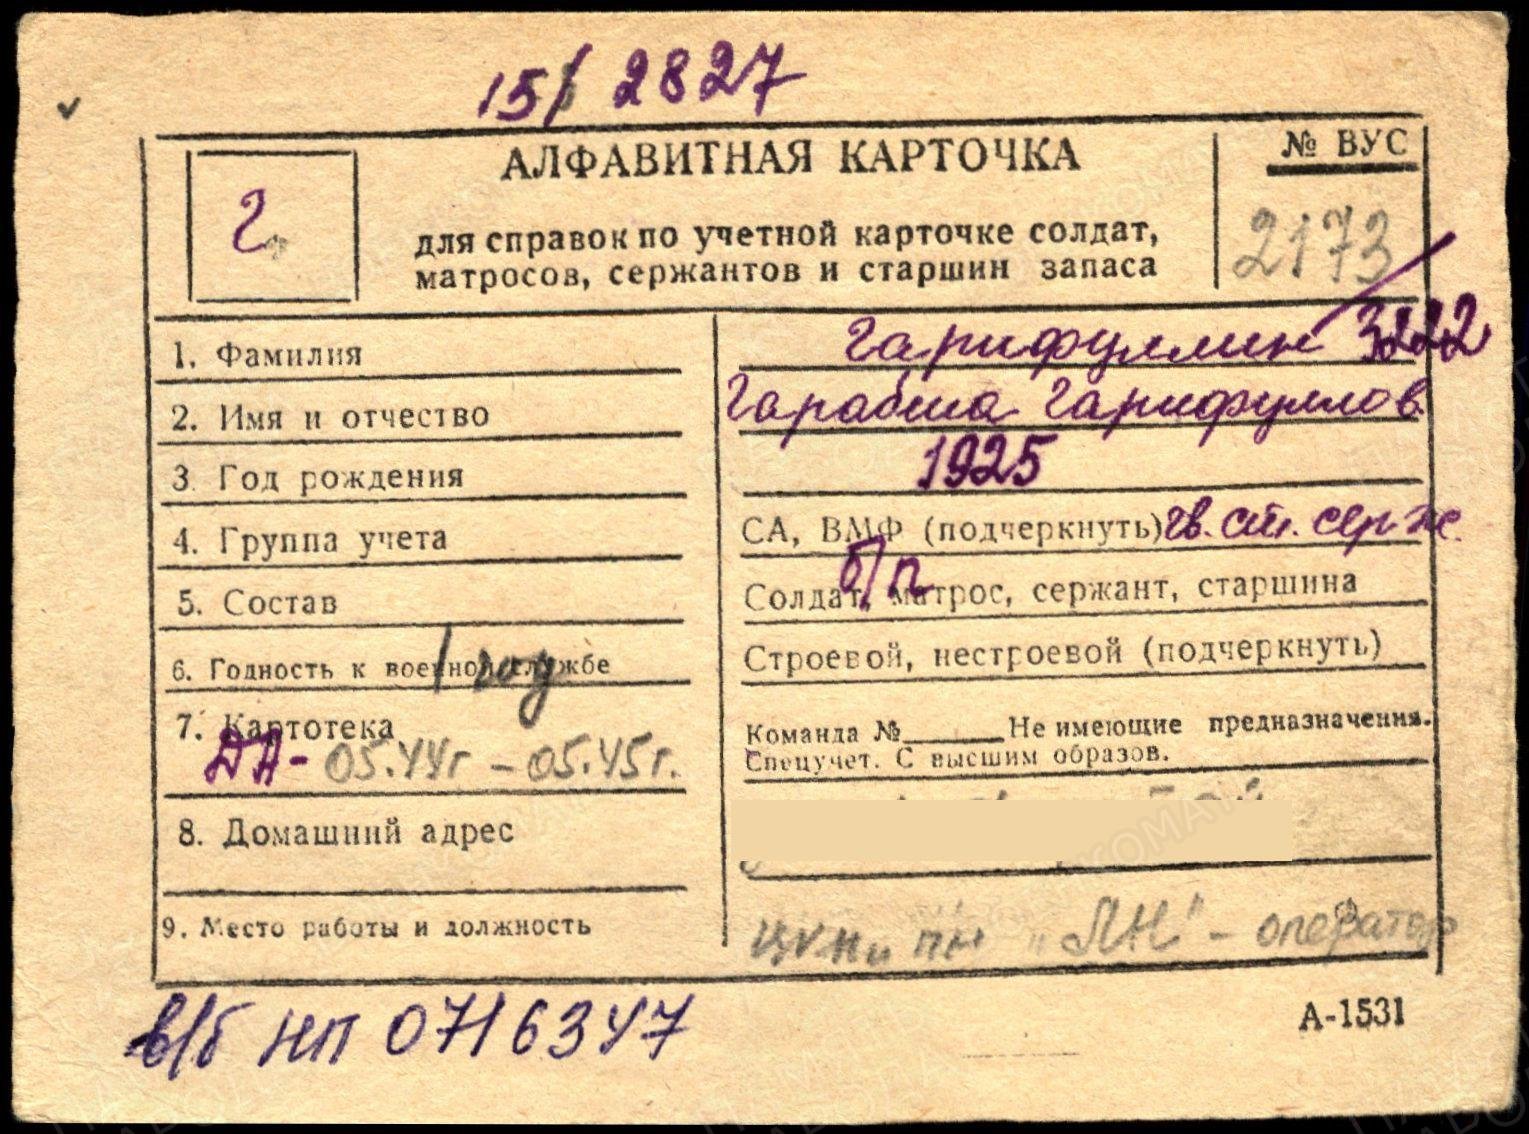 15/ 2827
АЛФАВИТНАЯ КАРТОЧКА
№ ВУС
Г
для справок по учетной карточке солдат,
матросов, сержантов и старшин запаса
2173/3222
1. Фамилия Гарифуллин
2. Имя и отчество Гарабша Гарифуллов.
3. Год рождения 1925
4. Группа учета СА, ВМФ (подчеркнуть) гв. ст. серж.
5. Состав Солдат, матрос, сержант, старшина б/п
6. Годность к военной службе Строевой, нестроевой (подчеркнуть)
1 год
7. Картотека Команда № Не имеющие предназначения.
ДА- 05.44г - 05.45г. Спецучет. С высшим образов.
8. Домашний адрес
9. Место работы и должность "ЯН" - оператор
в/б НП 0716347
А-1531